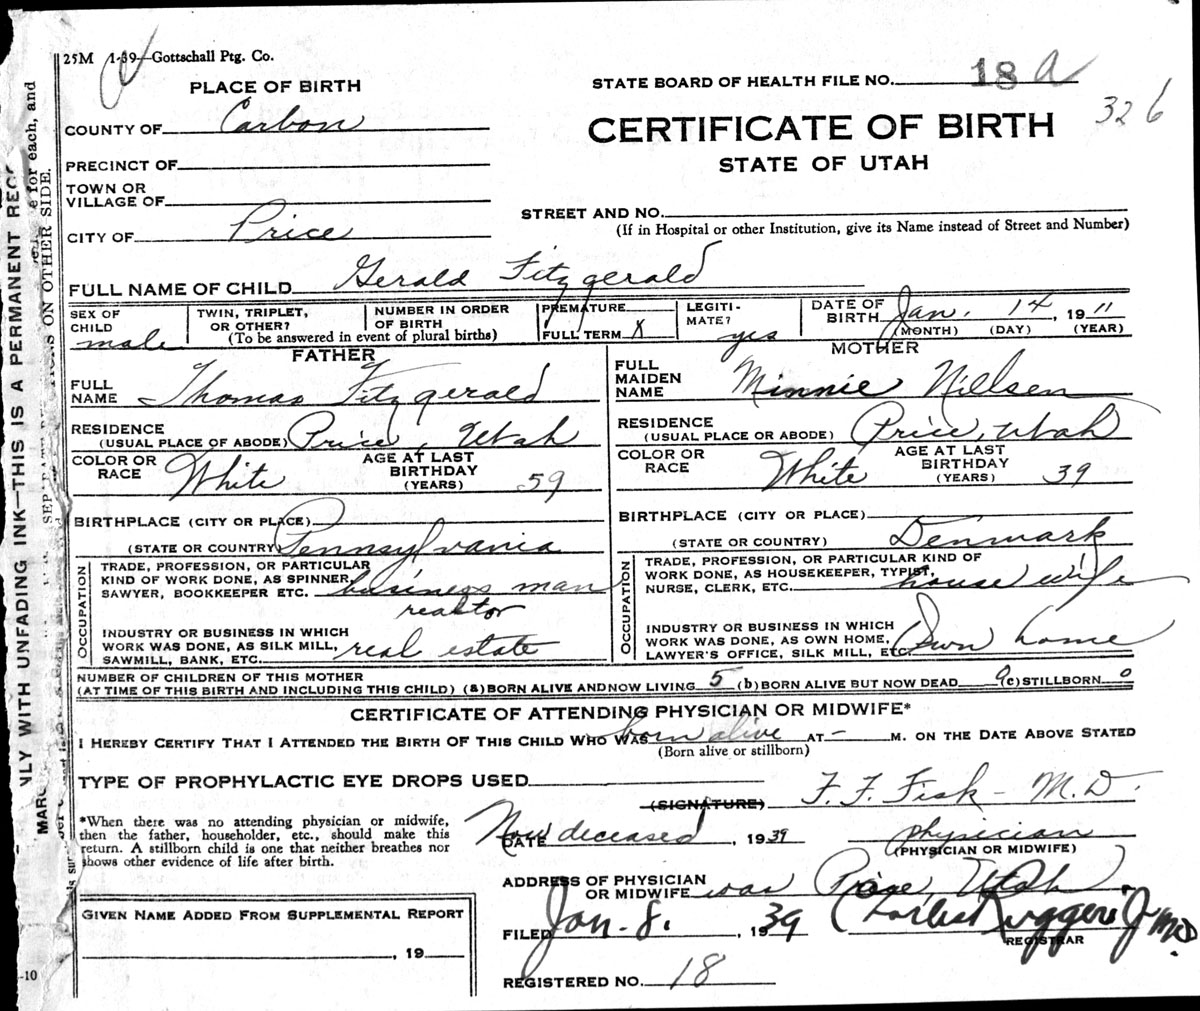 25M 1-39—Gottschall Ptg. Co.
PLACE OF BIRTH
STATE BOARD OF HEALTH FILE NO. 18 a
326
COUNTY OF Carbon
CERTIFICATE OF BIRTH
STATE OF UTAH
PRECINCT OF
TOWN OR
VILLAGE OF
CITY OF Price
STREET AND NO.
(If in Hospital or other Institution, give its Name instead of Street and Number)
FULL NAME OF CHILD Gerald Fitzgerald
SEX OF
CHILD male
TWIN, TRIPLET,
OR OTHER?
NUMBER IN ORDER
OF BIRTH
(To be answered in event of plural births)
PREMATURE
FULL TERM X
LEGITI-
MATE? yes
DATE OF
BIRTH Jan. 14, 1911
(MONTH) (DAY) (YEAR)
FATHER
FULL
NAME Thomas Fitzgerald
RESIDENCE
(USUAL PLACE OF ABODE) Price, Utah
COLOR OR
RACE White
AGE AT LAST
BIRTHDAY
(YEARS) 59
BIRTHPLACE (CITY OR PLACE)
(STATE OR COUNTRY) Pennsylvania
OCCUPATION
TRADE, PROFESSION, OR PARTICULAR
KIND OF WORK DONE, AS SPINNER,
SAWYER, BOOKKEEPER ETC. business man
realtor
INDUSTRY OR BUSINESS IN WHICH
WORK WAS DONE, AS SILK MILL,
SAWMILL, BANK, ETC. real estate
MOTHER
FULL
MAIDEN
NAME Minnie Nillsen
RESIDENCE
(USUAL PLACE OR ABODE) Price, Utah
COLOR OR
RACE White
AGE AT LAST
BIRTHDAY
(YEARS) 39
BIRTHPLACE (CITY OR PLACE)
(STATE OR COUNTRY) Denmark
OCCUPATION
TRADE, PROFESSION, OR PARTICULAR KIND OF
WORK DONE, AS HOUSEKEEPER, TYPIST,
NURSE, CLERK, ETC. house wife
INDUSTRY OR BUSINESS IN WHICH
WORK WAS DONE, AS OWN HOME,
LAWYER'S OFFICE, SILK MILL, ETC. Own home
NUMBER OF CHILDREN OF THIS MOTHER
(AT TIME OF THIS BIRTH AND INCLUDING THIS CHILD) (a) BORN ALIVE AND NOW LIVING 5 (b) BORN ALIVE BUT NOW DEAD (c) STILLBORN 0
CERTIFICATE OF ATTENDING PHYSICIAN OR MIDWIFE*
I HEREBY CERTIFY THAT I ATTENDED THE BIRTH OF THIS CHILD WHO WAS born alive AT - M. ON THE DATE ABOVE STATED
(Born alive or stillborn)
TYPE OF PROPHYLACTIC EYE DROPS USED
(SIGNATURE) F. F. Fisk - M.D.
*When there was no attending physician or midwife,
then the father, householder, etc., should make this
return. A stillborn child is one that neither breathes nor
shows other evidence of life after birth.
DATE Now deceased, 1939
physician
(PHYSICIAN OR MIDWIFE)
ADDRESS OF PHYSICIAN
OR MIDWIFE was Price, Utah.
FILED Jan. 8., 1939 Charles Ruggeri Jr MD.
REGISTRAR
REGISTERED NO. 18
GIVEN NAME ADDED FROM SUPPLEMENTAL REPORT
, 19
-10
NLY WITH UNFADING INK—THIS IS A PERMANENT REC
e for each, and
ON OTHER SIDE.